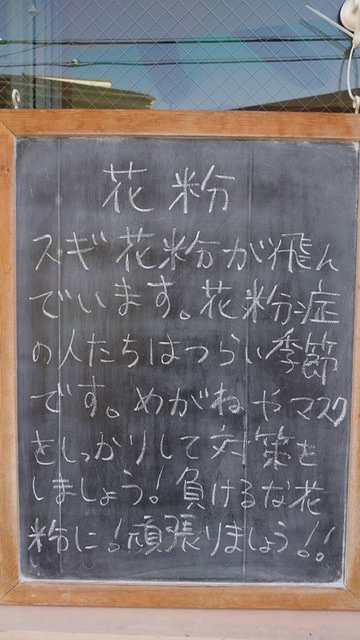 花粉
スギ花粉が飛ん
でいます。花粉症
の人たちはつらい季節
です。めがねやマスク
をしっかりして対策を
しましょう!負けるな花
粉に!頑張りましょう!!